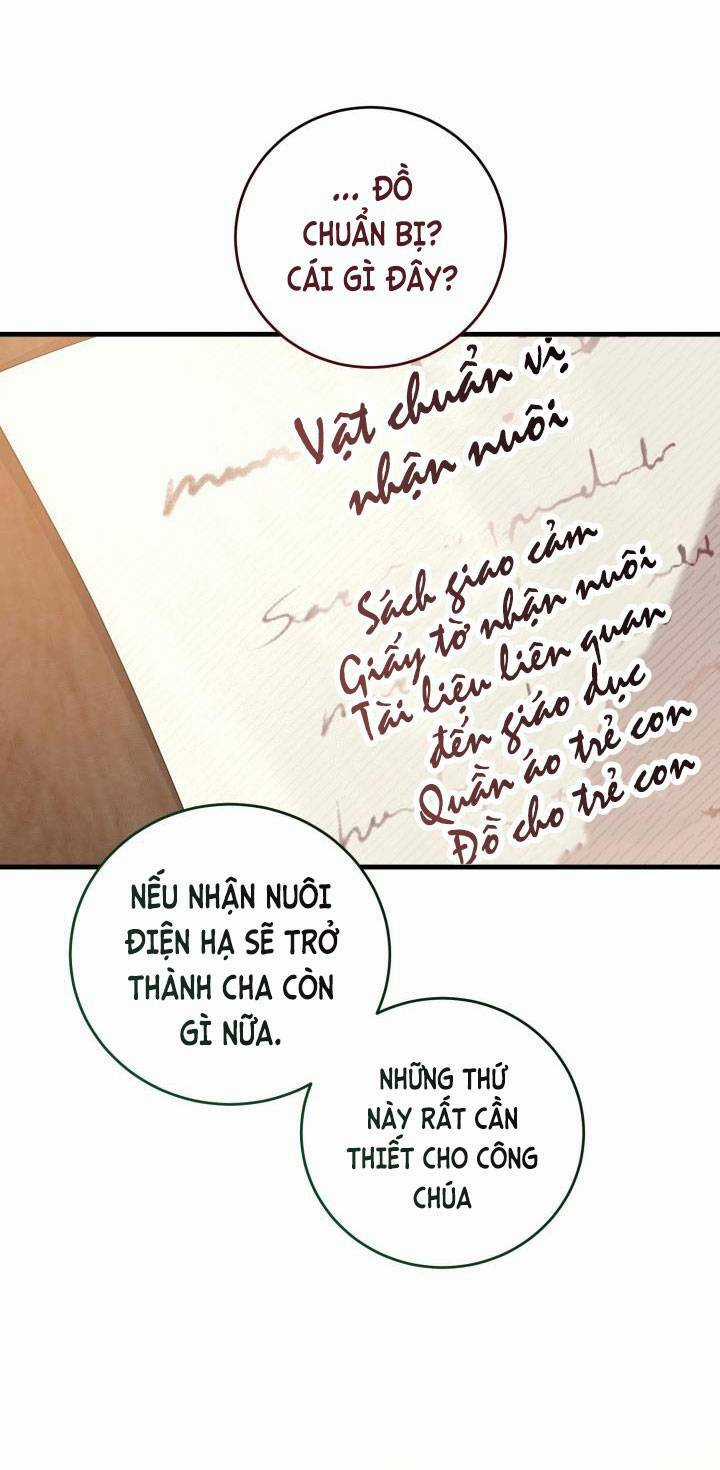 ... ĐỒ
CHUẨN BỊ?
CÁI GÌ ĐÂY?
Vật chuẩn vị
nhận nuôi
Sách giao cảm
Giấy tờ nhận nuôi
Tài liệu liên quan
đến giáo dục
Quần áo trẻ con
Đồ cho trẻ con
NẾU NHẬN NUÔI
ĐIỆN HẠ SẼ TRỞ
THÀNH CHA CÒN
GÌ NỮA.
NHỮNG THỨ
NÀY RẤT CẦN
THIẾT CHO CÔNG
CHÚA